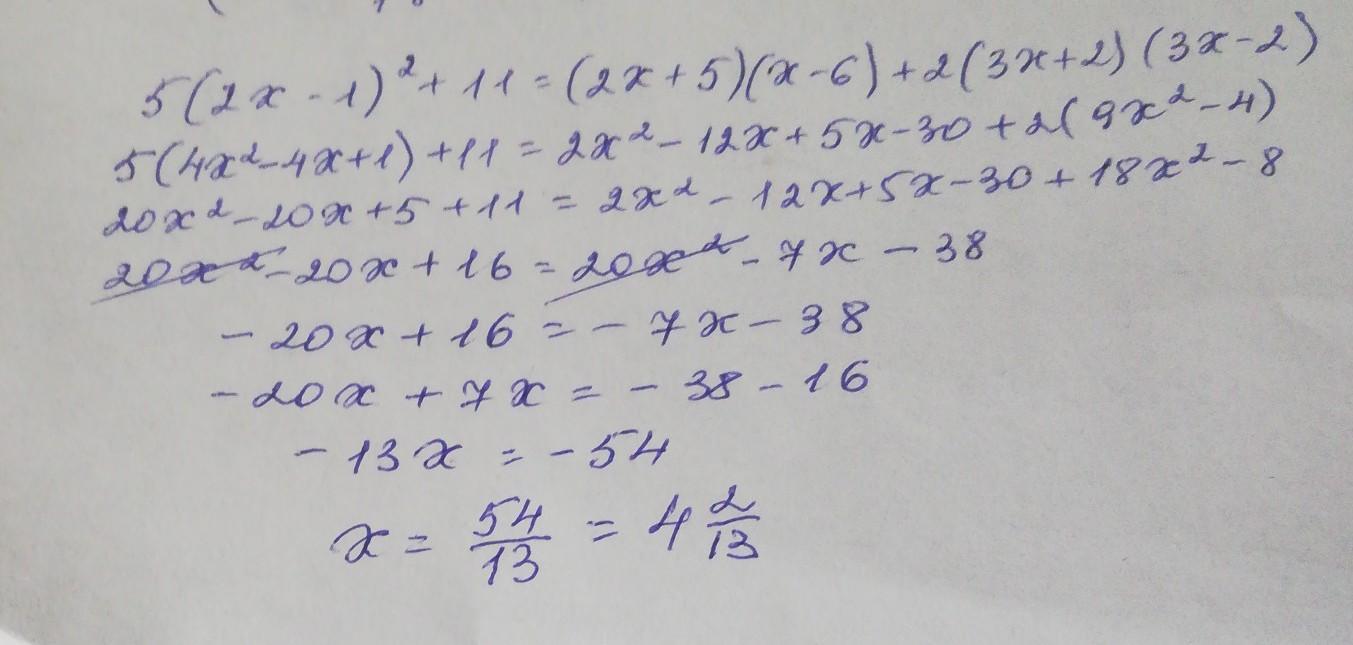 5(2x - 1)² + 11 = (2x + 5)(x - 6) + 2(3x + 2)(3x - 2)
5(4x² - 4x + 1) + 11 = 2x² - 12x + 5x - 30 + 2(9x² - 4)
20x² - 20x + 5 + 11 = 2x² - 12x + 5x - 30 + 18x² - 8
20x² - 20x + 16 = 20x² - 7x - 38
- 20x + 16 = - 7x - 38
- 20x + 7x = - 38 - 16
- 13x = - 54
x = 54/13 = 4 2/13